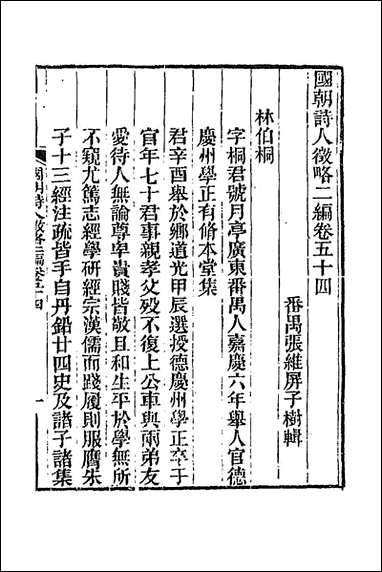 國朝詩人徵略二編卷五十四
番禺張維屏子樹輯
林伯桐
字桐君號月亭廣東番禺人嘉慶六年舉人官德
慶州學正有修本堂集
君辛酉舉於鄉道光甲辰選授德慶州學正卒于
官年七十君事親孝父歿不復上公車與兩弟友
愛待人無論尊卑貴賤皆敬且和生平於學無所
不窺尤篤志經學研經宗漢儒而踐履則服膺朱
子十三經注疏皆手自丹鉛廿四史及諸子諸集
國朝詩人徵略二編卷五十四
一